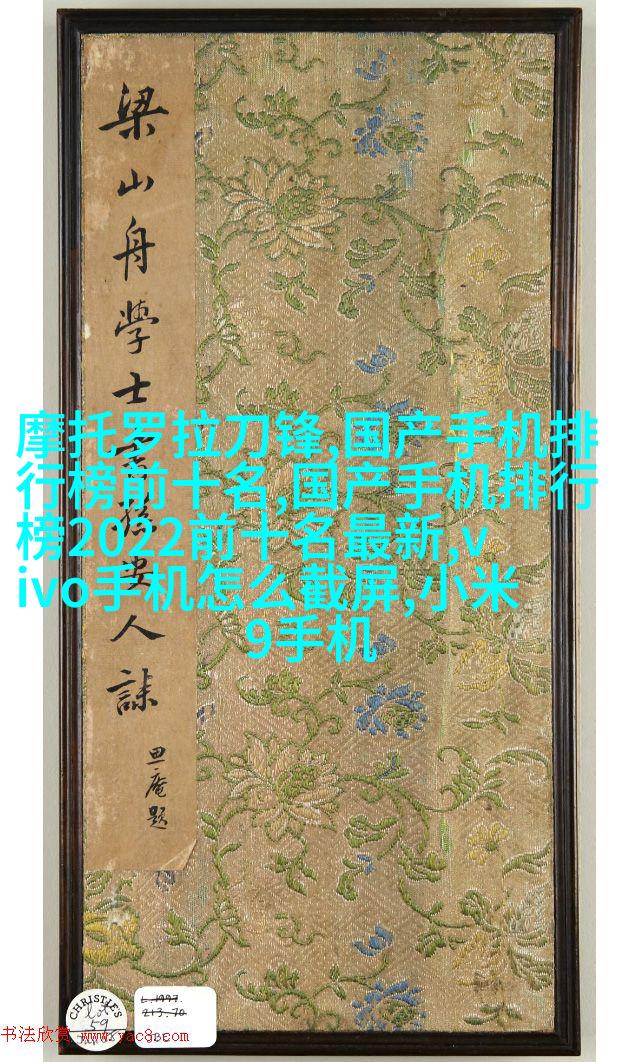 梁山舟學士書孫安人誄
庵題
摩托罗拉刀锋,国产手机排
行榜前十名,国产手机排行
榜2022前十名最新,v
ivo手机怎么截屏,小米
9手机
CHRISTIE'S
Lot
59
L.1997.
213.70
书法欣赏 www.yac8.com